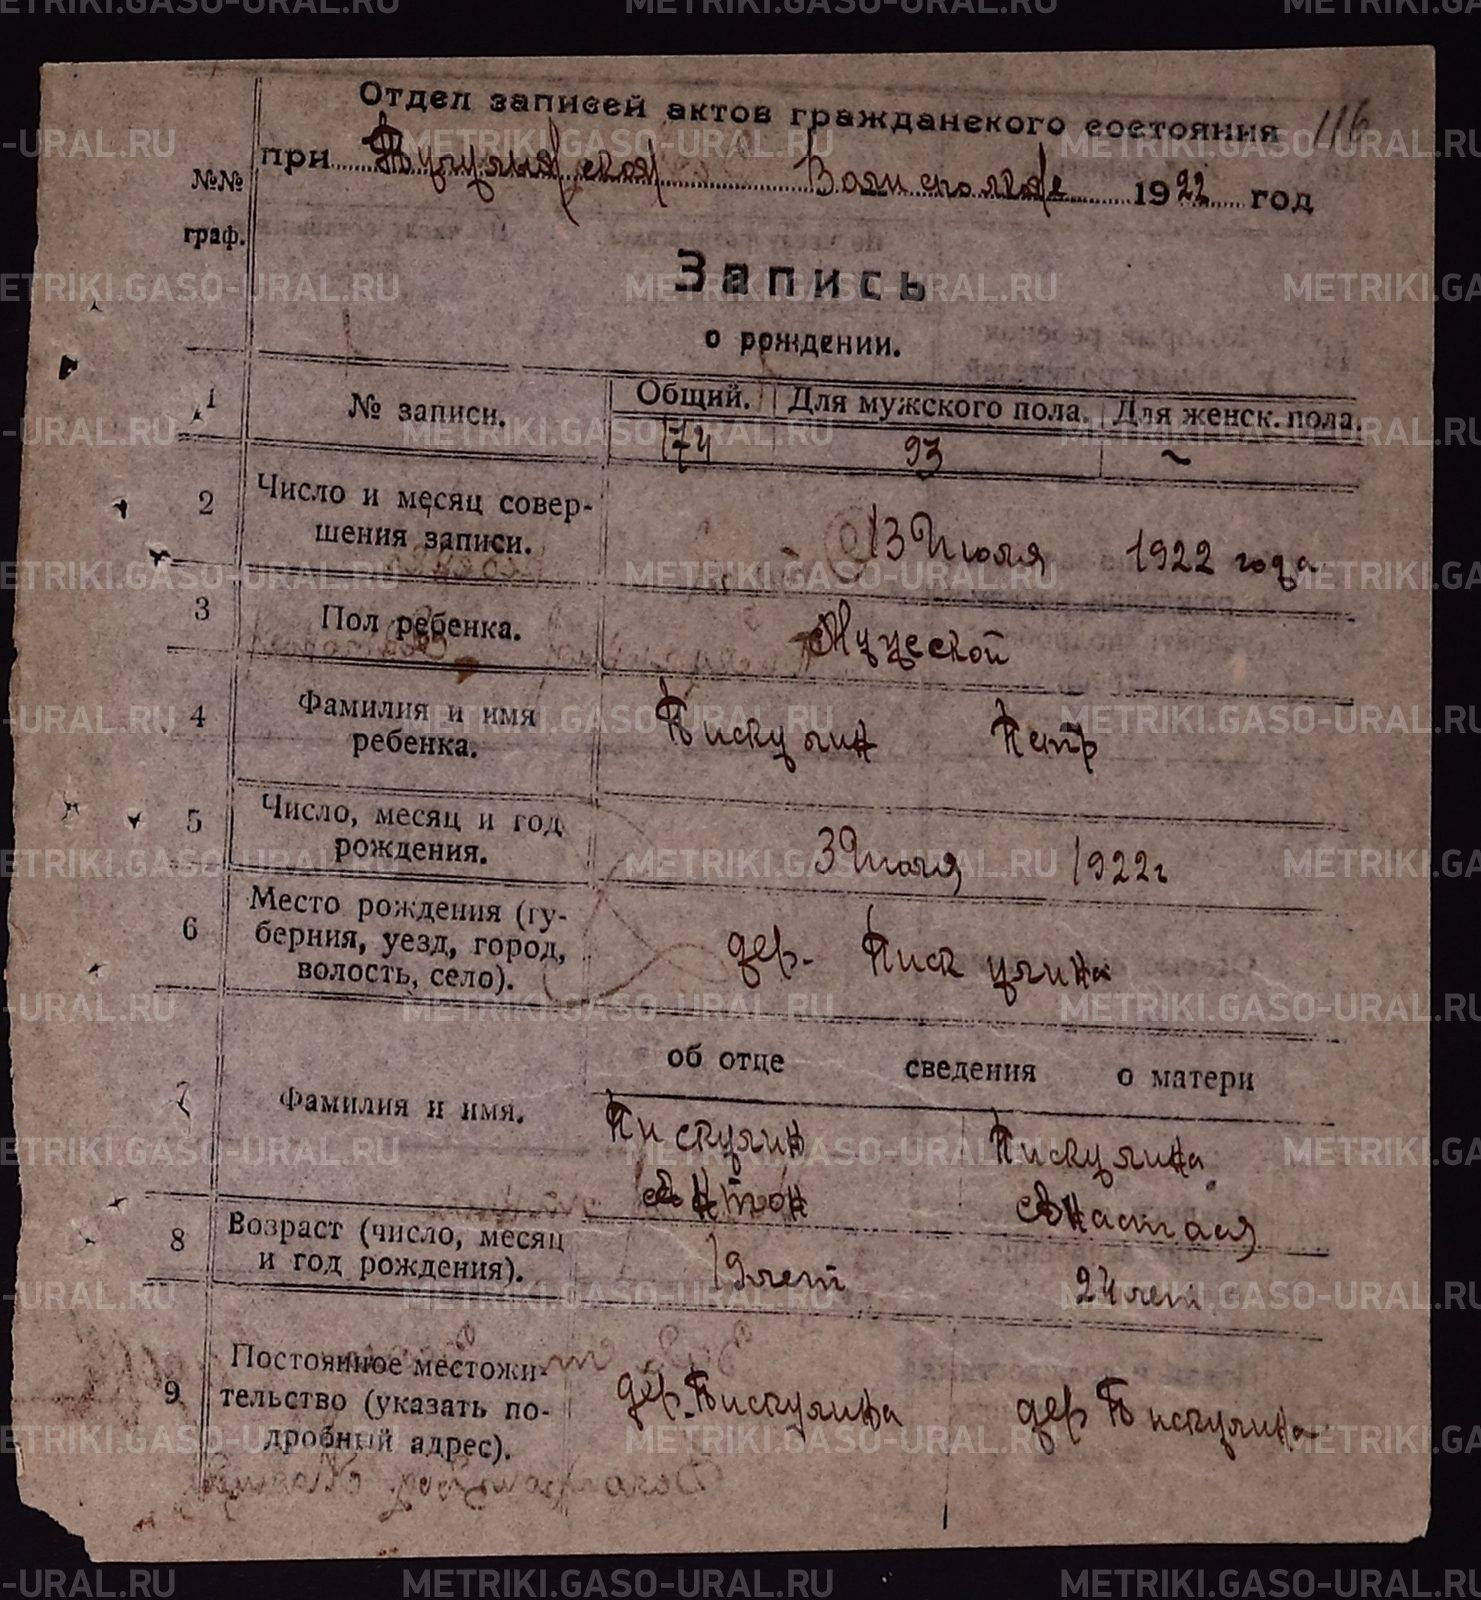 Отдел записей актов гражданского состояния 116
при Тугулымской Волисполкоме 1922 год
№№ граф.
Запись
о рождении.
1 № записи. Общий. Для мужского пола. Для женск. пола.
174 93 ~
2 Число и месяц совер-
шения записи. 13 Июля 1922 года
3 Пол ребенка. Мужской
4 Фамилия и имя
ребенка. Пискулин Петр
5 Число, месяц и год
рождения. 3 Июля 1922 г
6 Место рождения (гу-
берния, уезд, город,
волость, село). дер. Пискулина
об отце сведения о матери
7 Фамилия и имя. Пискулин Пискулина
Антон Анастася
8 Возраст (число, месяц
и год рождения). 19 лет 24 лет
9 Постоянное местожи-
тельство (указать по-
дробный адрес). дер. Пискулина дер Пискулина
METRIKI.GASO-URAL.RU